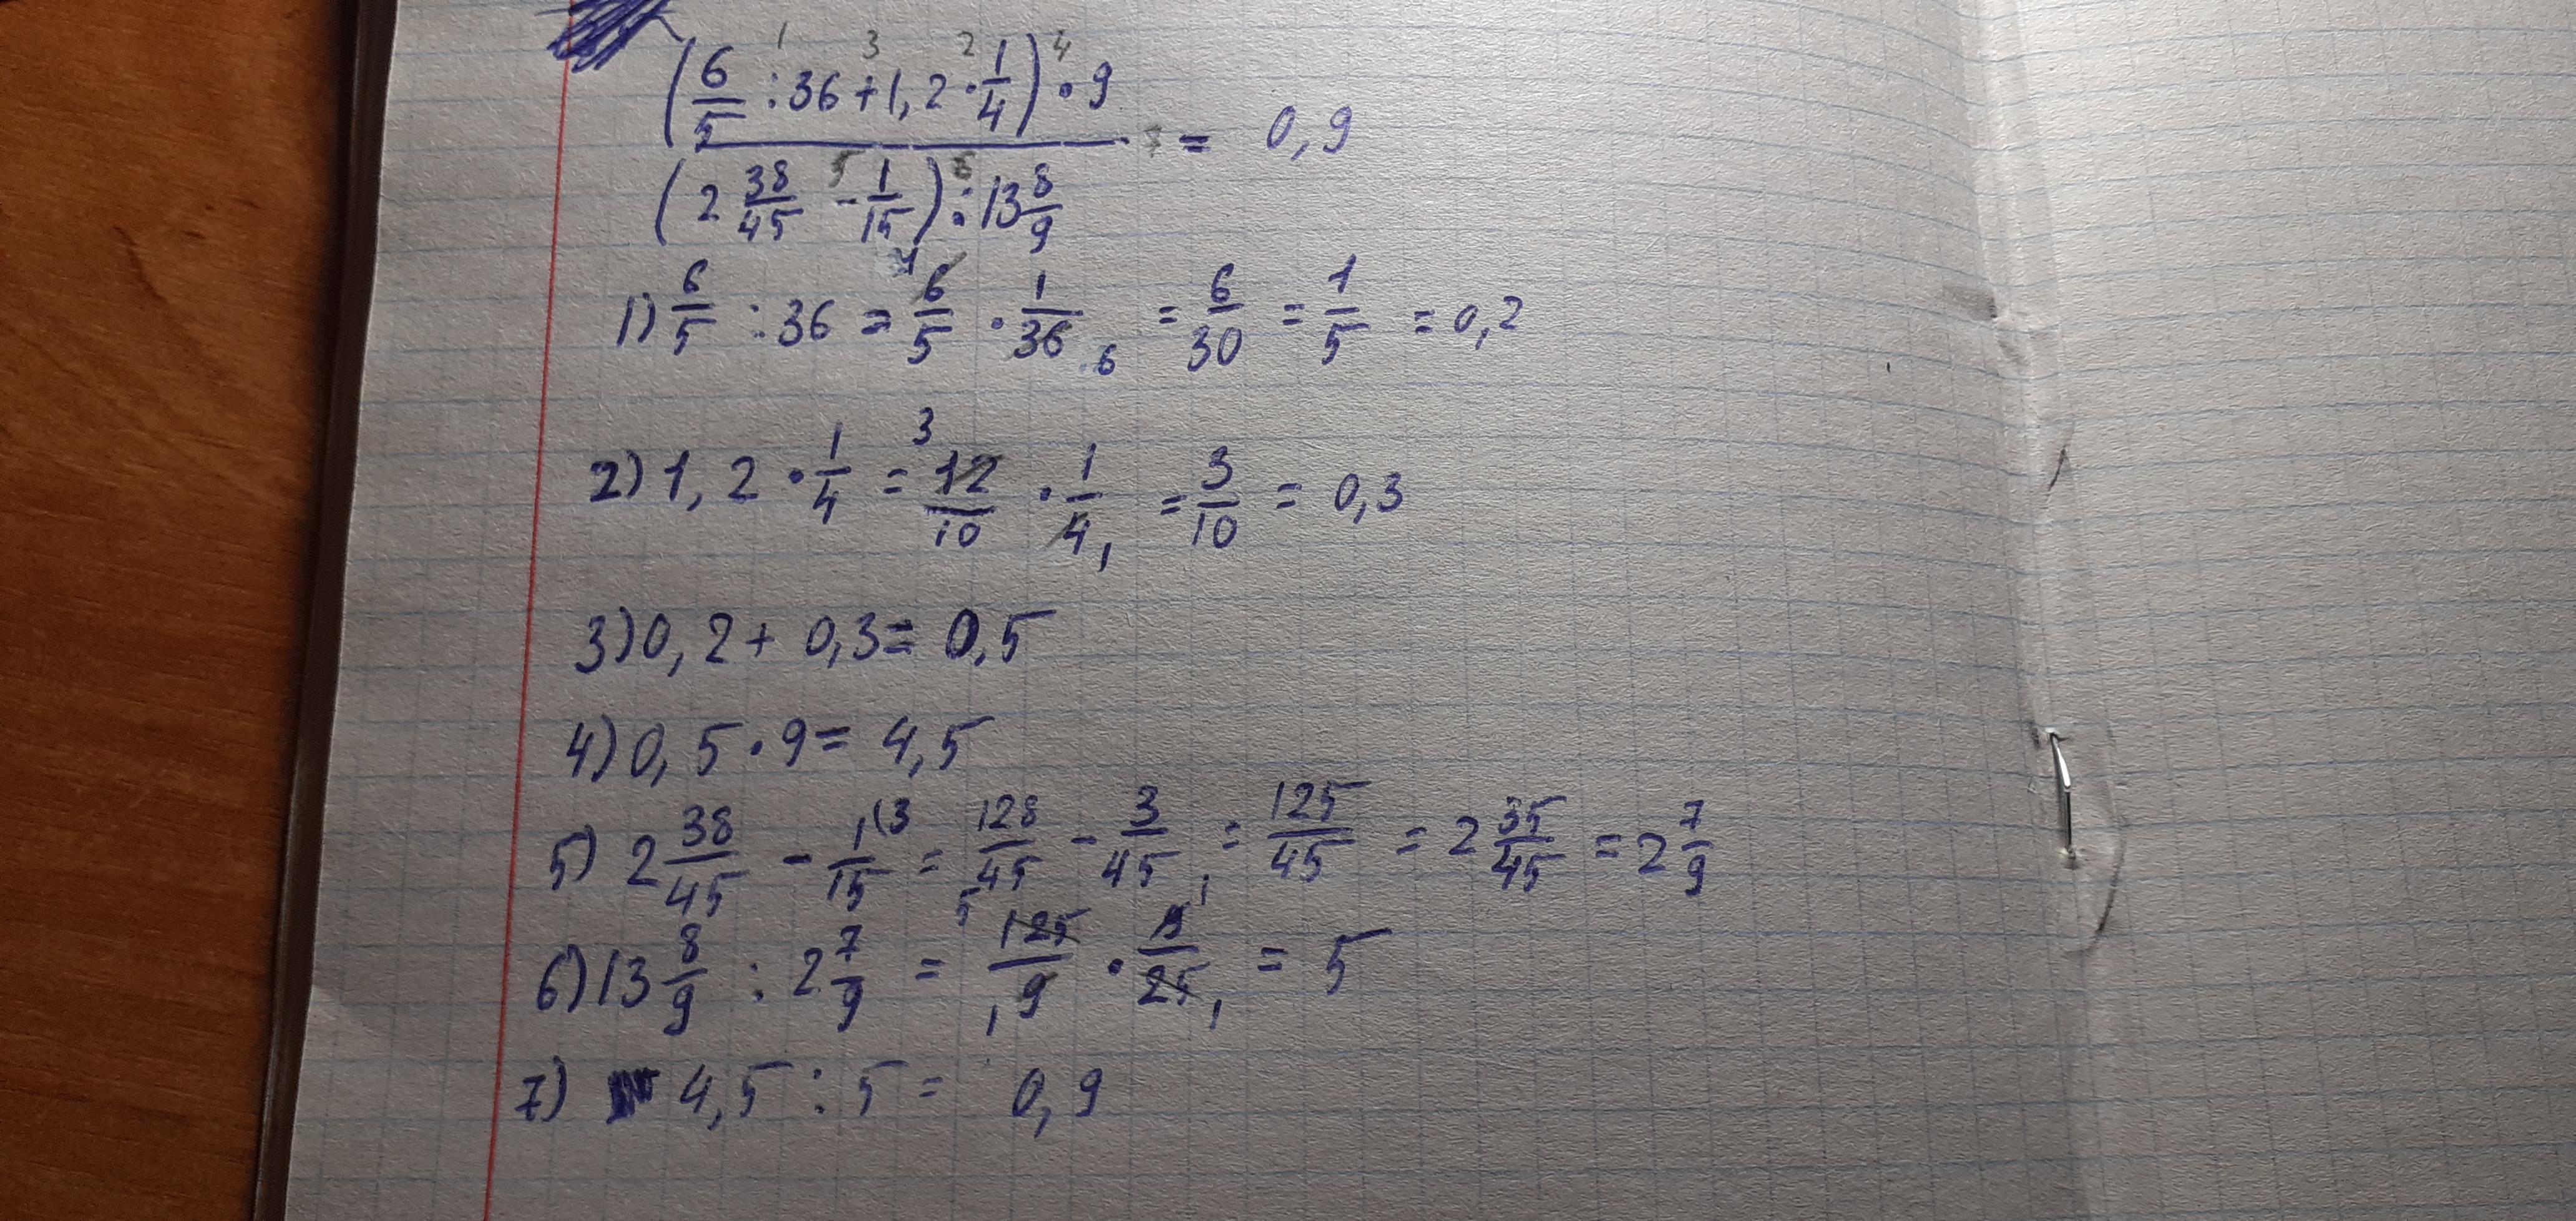 (6/5 : 36 + 1,2 · 1/4) · 9
1 3 2 4
―――――――――――― 7 = 0,9
(2 38/45 - 1/15) : 13 8/9
5 6
1) 6/5 : 36 = 6/5 · 1/36 6 = 6/30 = 1/5 = 0,2
2) 1,2 · 1/4 = 3 12/10 · 1/4 1 = 3/10 = 0,3
3) 0,2 + 0,3 = 0,5
4) 0,5 · 9 = 4,5
5) 2 38/45 - 1/15 (3 = 128/45 - 3/45 = 125/45 = 2 35/45 = 2 7/9
6) 13 8/9 : 2 7/9 = 5 125/9 1 · 9/25 1 = 5
7) 4,5 : 5 = 0,9